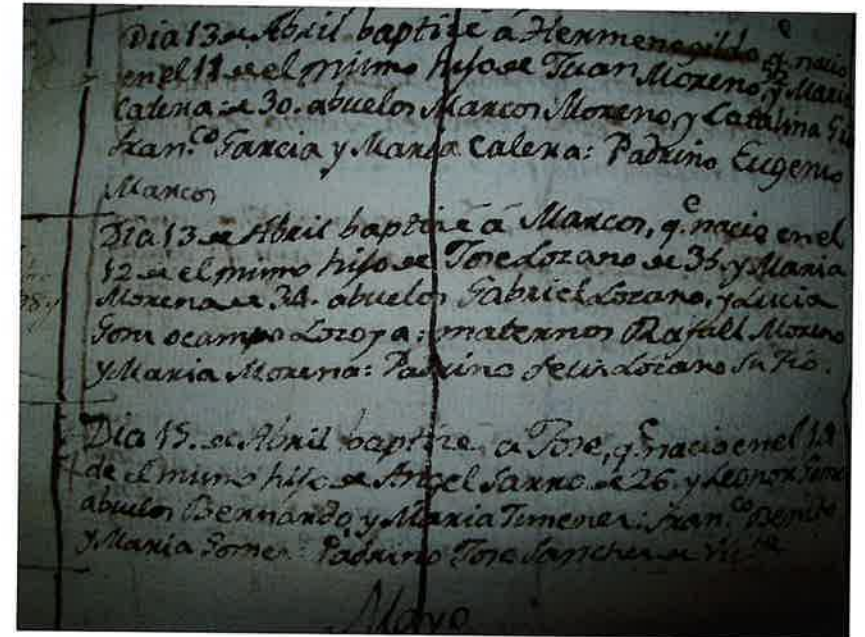 Dia 13 de Abril baptize á Hermenegildo q.e nacio
en el 11 de el mismo hijo de Juan Moreno, y Maria
Calera de 30. abuelos Marcos Moreno, y Catalina
Fran.co Garcia y Maria Calera: Padrino Eugenio
Marcos
Dia 13 de Abril baptize á Marcos, q.e nacio en el
12 de el mismo hijo de Jose Lozano de 35. y Maria
Morena de 34. abuelos Gabriel Lozano, y Lucia
ocampo Lozoya: maternos Rafael Moreno
y Maria Morena: Padrino Felis Lozano su tio.
Dia 15. de Abril baptize a Jose, q.e nacio en el 14
de el mismo hijo de Angel Sanno de 26. y Leonor
abuelos Bernardo, y Maria Jimenez: Fran.co Benito
y Maria Gomez: Padrino Jose Sanchez de
Mayo